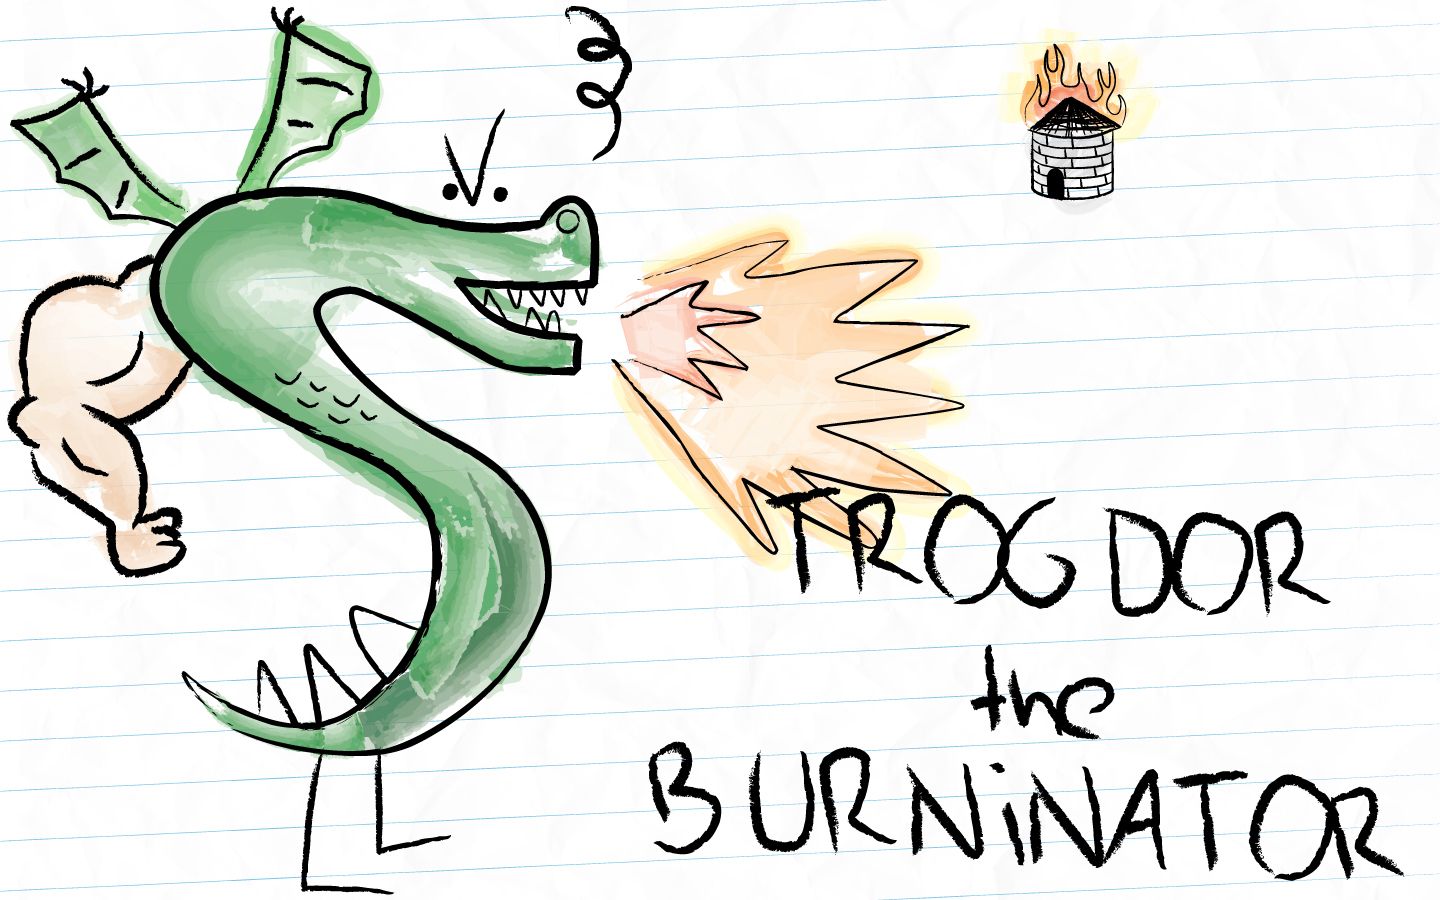 TROGDOR
the
BURNiNATOR